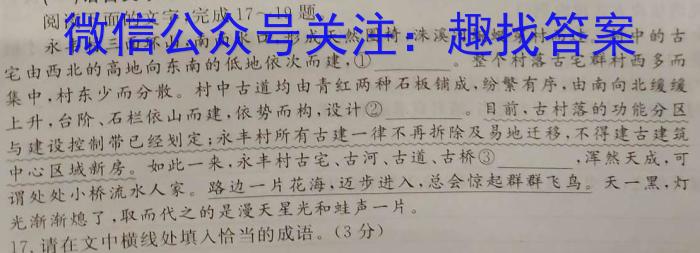 阅读下面的文字，完成17～19题。
微信公众号关注：趣找答案
永丰村三面环 南 水口 形成天然围椅 洙溪 村 中的古
宅由西北的高地向东南的低地依次而建，①________。整个村落古宅群村西多而
集中，村东少而分散。村中古道均由青红两种石板铺成，纷繁有序，由南向北缓缓
上升，台阶、石栏依山而建，依势而构，设计②________。目前，古村落的功能分区
与建设控制带已经划定；永丰村所有古建一律不再拆除及易地迁移，不得建古建筑
中心区域新房。如此一来，永丰村古宅、古河、古道、古桥③________，浑然天成，可
谓处处小桥流水人家。路边一片花海，迈步进入，总会惊起群群飞鸟。天一黑，灯
光渐渐熄了，取而代之的是漫天星光和蛙声一片。
17.请在文中横线处填入恰当的成语。（3分）